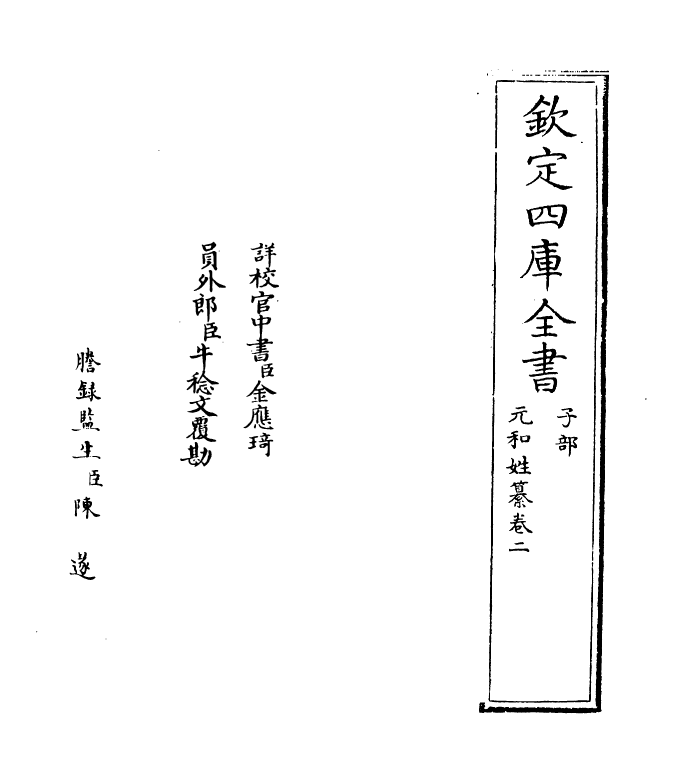 欽定四庫全書
子部
元和姓纂卷二
詳校官中書臣金應琦
員外郎臣牛稔文覆勘
謄録監生臣陳遂